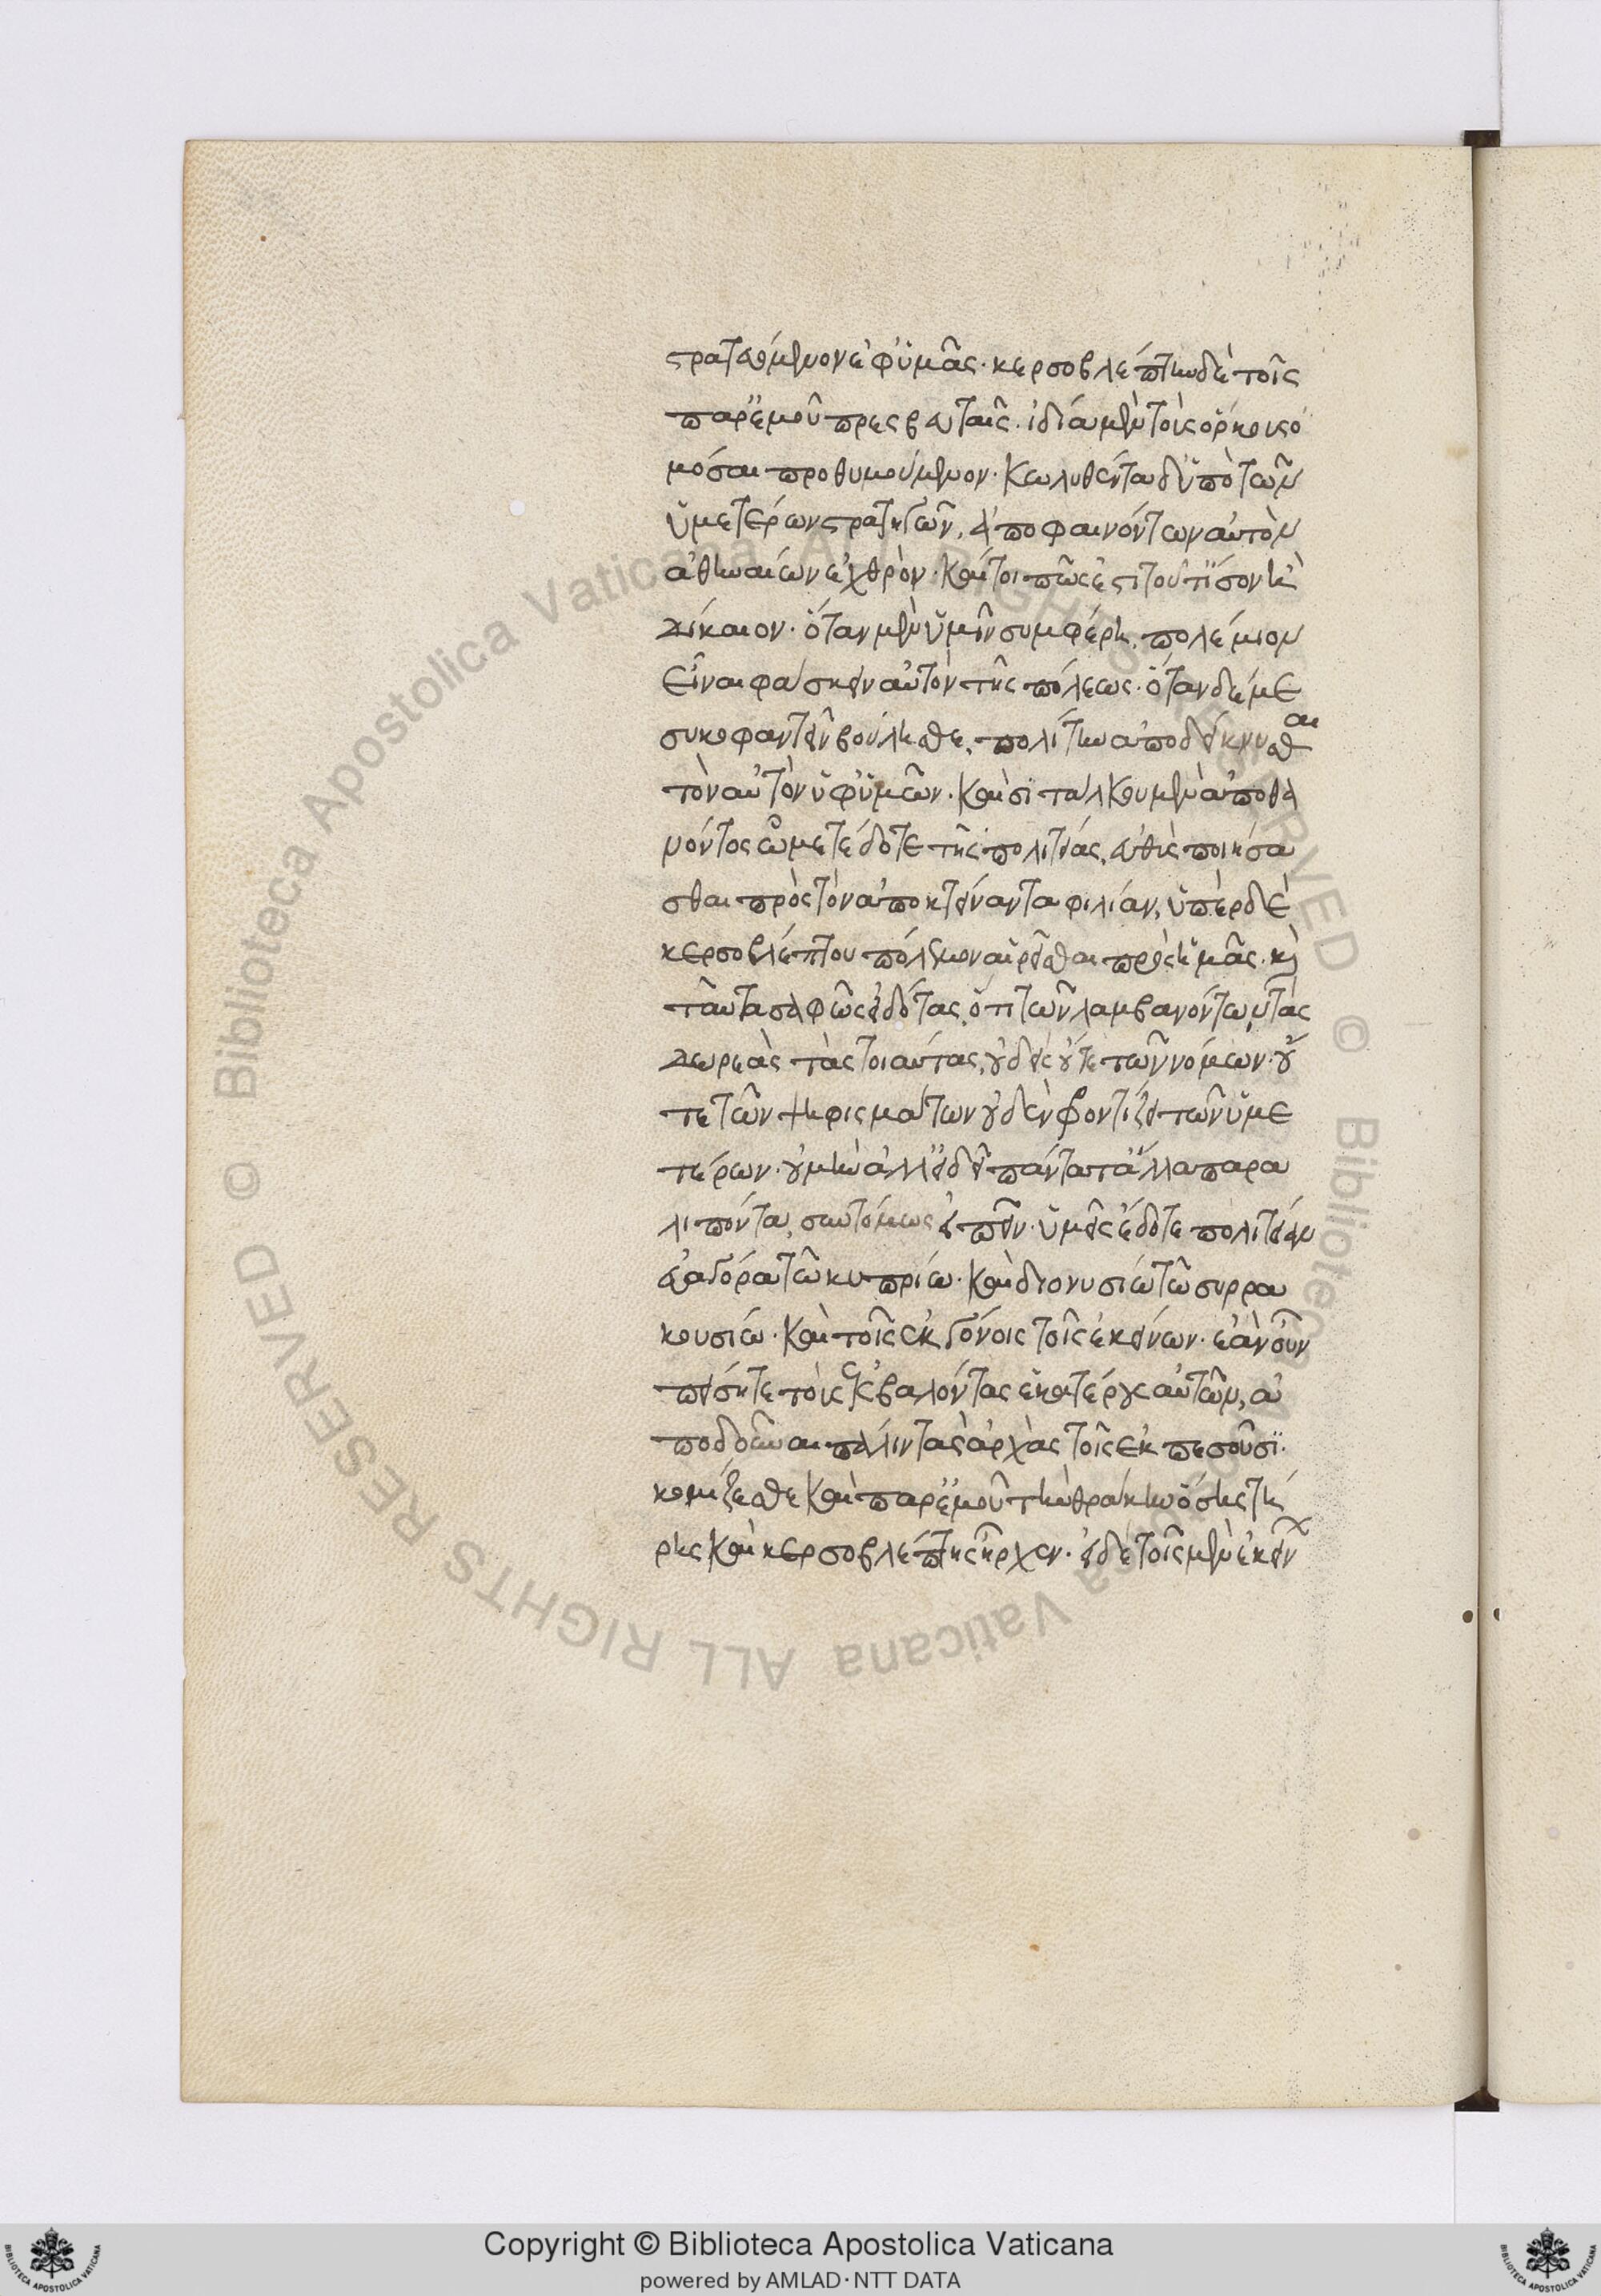 στρατευόμενον ἐφ' ὑμᾶς. κερσοβλέπτην δὲ τοῖς
παρ' ἐμοῦ πρεσβευταῖς. ἰδία μὲν τοὺς ὅρκους ὀ
μόσαι προθυμούμενον. κωλυθέντα δ' ὑπὸ τῶν
ὑμετέρων στρατηγῶν, ἀποφαινόντων αὐτὸν
ἀθηναίων ἐχθρόν. καίτοι πῶς ἐστι τοῦτ' ἴσον ἢ
δίκαιον. ὅταν μὲν ὑμῖν συμφέρη, πολέμιον
εἶναι φάσκειν αὐτὸν τῆς πόλεως. ὅταν δ' ἐμὲ
συκοφαντεῖν βούλησθε, πολίτην ἀποδείκνυσθαι
τὸν αὐτὸν ὑφ' ὑμῶν. καὶ σιτάλκου μὲν ἀποθα
νόντος ὧ μετέδοτε τῆς πολιτείας, εὐθὺς ποιήσα
σθαι πρὸς τὸν ἀποκτείναντα φιλίαν, ὑπὲρ δὲ
κερσοβλέπτου πόλεμον αἱρεῖσθαι πρὸς ἡμᾶς. καὶ
ταῦτα σαφῶς εἰδότας, ὅτι τῶν λαμβανόντων τὰς
δωρεὰς τὰς τοιαύτας, οὐδεὶς οὔτε τῶν νόμων. οὔ
τε τῶν ψηφισμάτων οὐδὲν φροντίζει τῶν ὑμε
τέρων. οὐ μὴν ἀλλ' εἰ δεῖ πάντα τἄλλα παρα
λιπόντα, συντόμως εἰπεῖν. ὑμεῖς ἔδοτε πολιτείαν
εὐαγόρα τῶ κυπρίω. καὶ διονυσίω τῶ συρρα
κουσίω. καὶ τοῖς ἐκγόνοις τοῖς ἐκείνων. ἐὰν οὖν
πείσητε τοὺς ἐκβαλόντας ἑκατέρους αὐτῶν, ἀ
ποδοῦναι πάλιν τὰς ἀρχὰς τοῖς ἐκπεσοῦσι.
κομίζεσθε καὶ παρ' ἐμοῦ τὴν θράκην ὅσης τή
ρης καὶ κερσοβλέπτης ἦρχεν. εἰ δὲ τοῖς μὲν ἐκείν
Copyright © Biblioteca Apostolica Vaticana
powered by AMLAD·NTT DATA